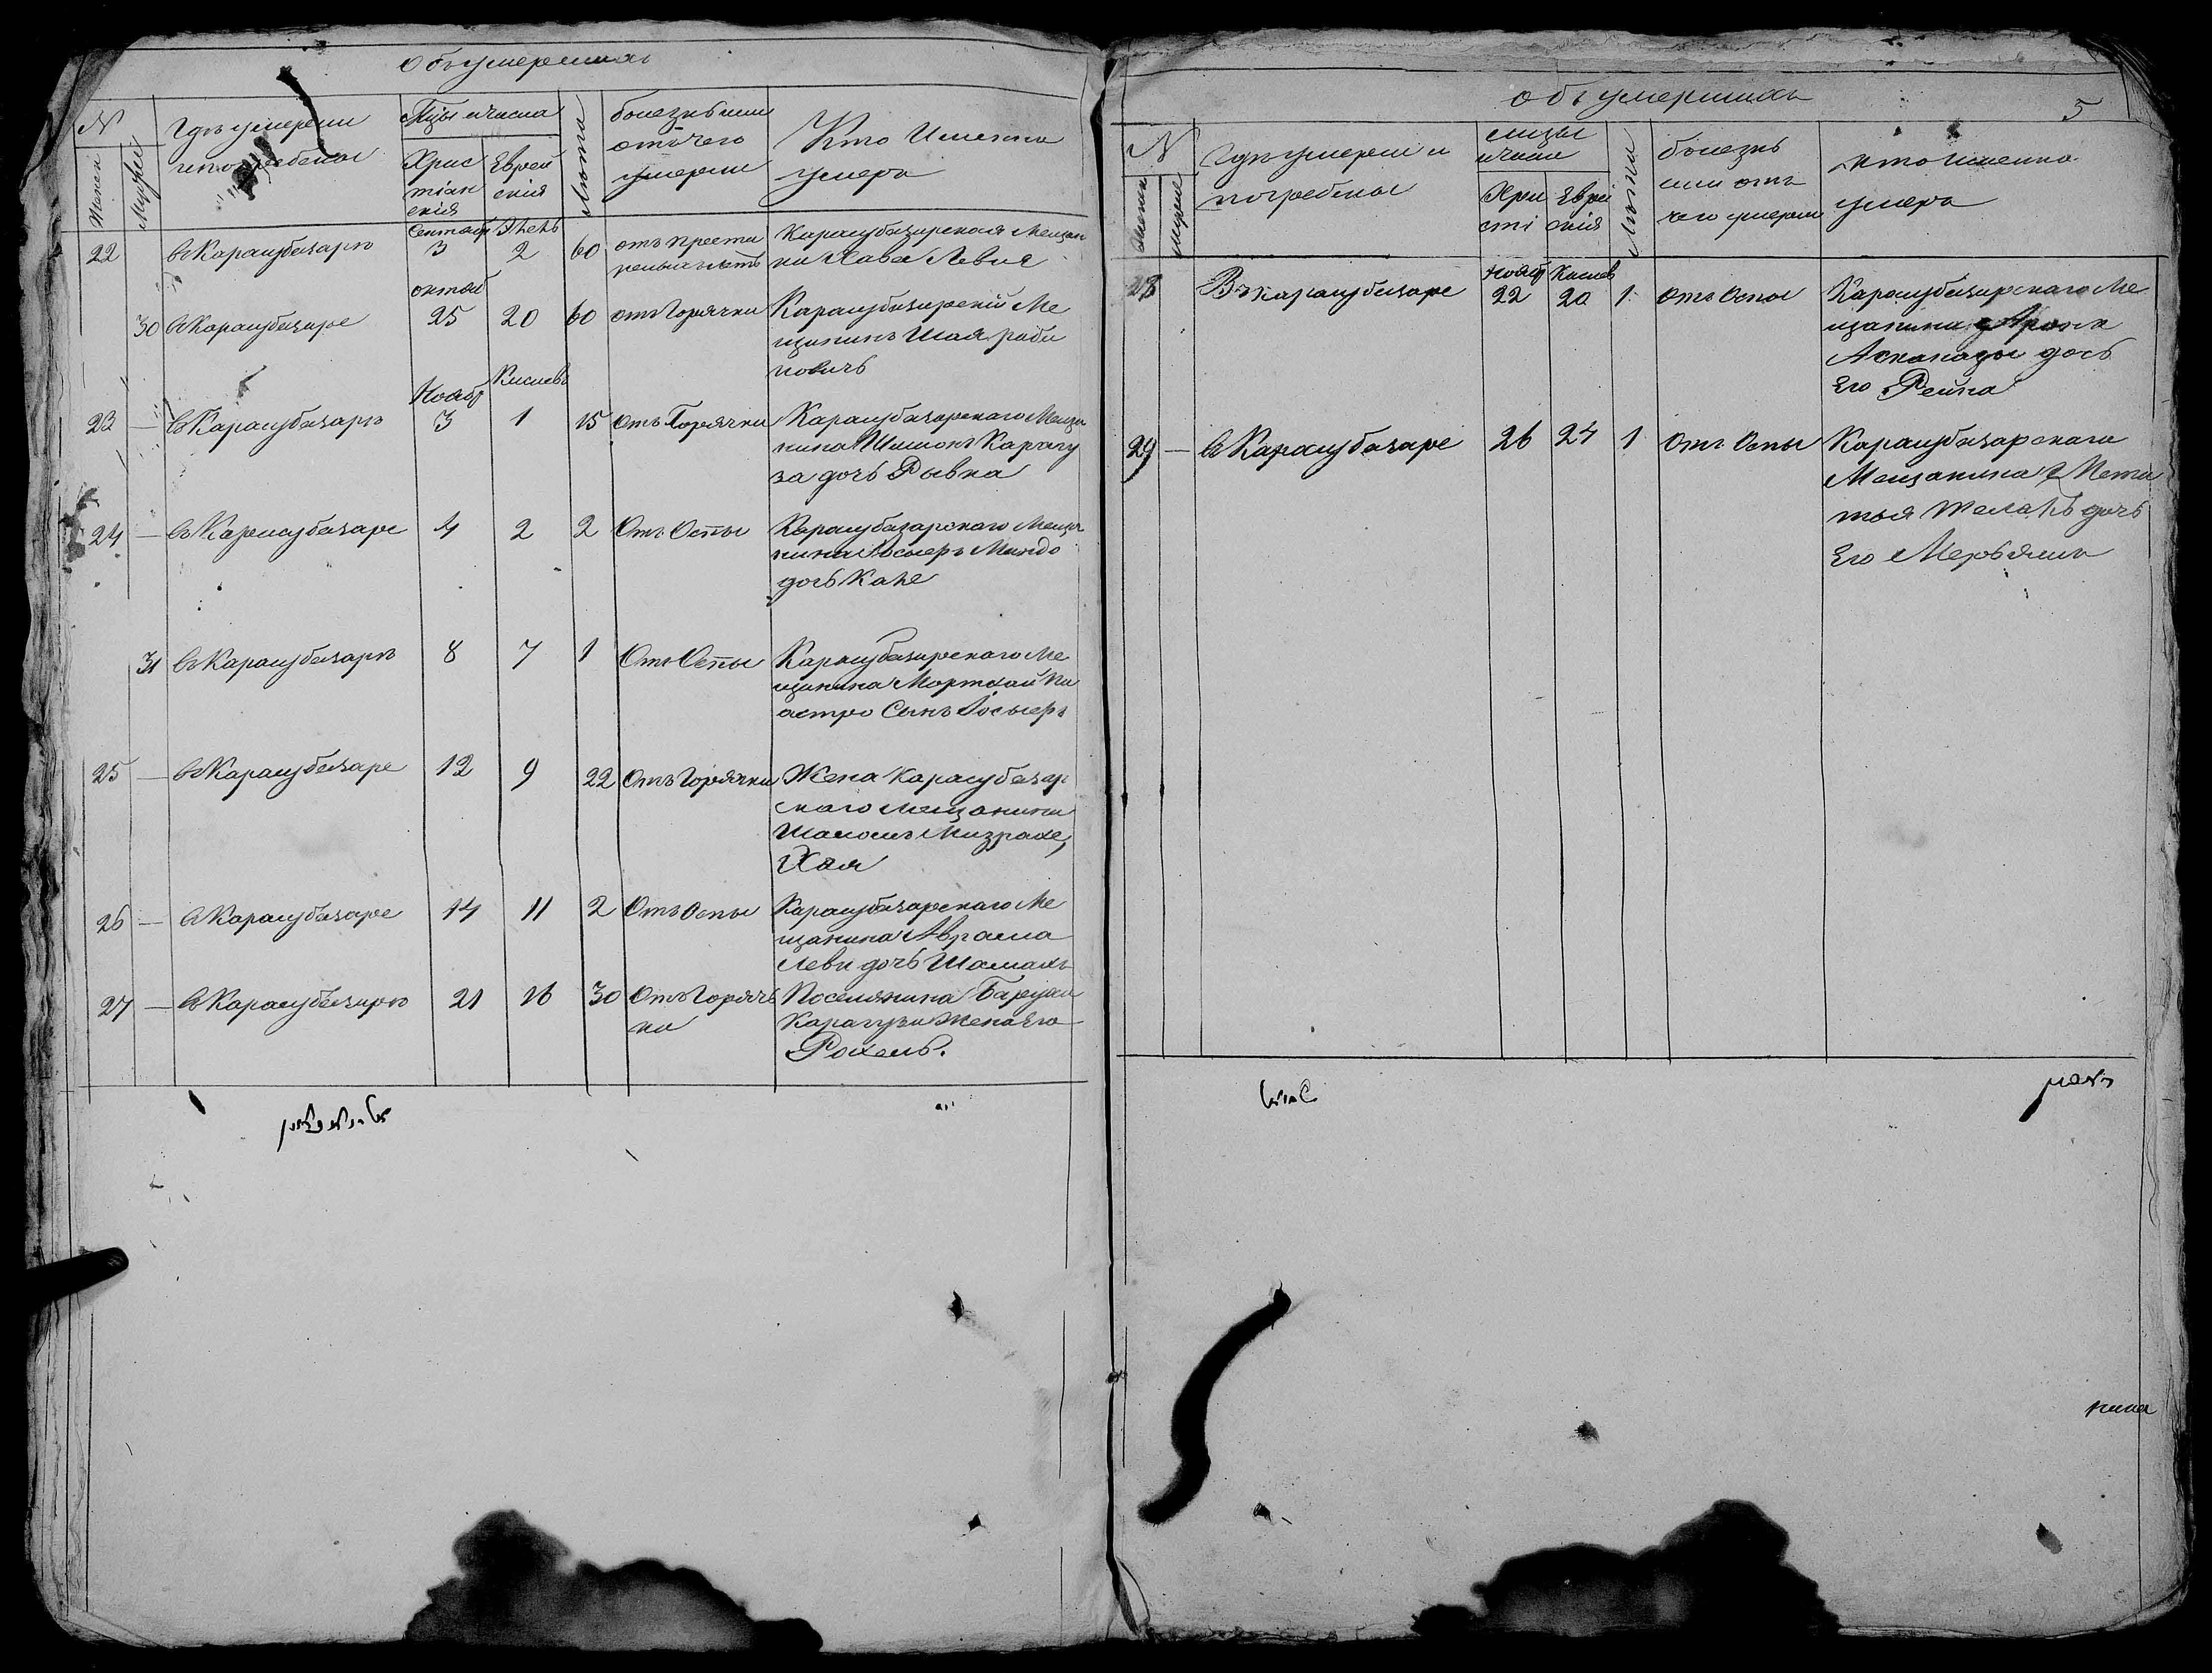 объ умершихъ
N
Женск
Мужеск
Гдѣ умерли
и погребены
Мцы и числа
Хрис
тіан
скія
Еврей
скія
Лѣта
болезнь или
отъ чего
умерли
Кто Именно
умеръ
Сентяб
22 въ Карасубазарѣ 3 2 60 отъ престарелыхъ лѣтъ Карасубазарская Мещан
ка Хава Левия
октяб
30 въ Карасубазаре 25 20 60 отъ Горячки Карасубазарскій Ме
щанинъ Шая раби
новичъ
Нояб Кислевъ
23 — въ Карасубазарѣ 3 1 15 отъ Горячки Карасубазарскаго Меща
нина Шимонъ Карагу
за дочь Рывка
24 — въ Карасубазаре 4 2 2 Отъ Оспы Карасубазарскаго Меща
нина Іосыеръ Мандо
дочь Кане
31 въ Карасубазарѣ 8 7 1 Отъ Оспы Карасубазарскаго Ме
щанина Мортхай Пи
астро Сынъ Іосыеръ
25 — въ Карасубазаре 12 9 22 Отъ Горячки Жена Карасубазар
скаго мещанина
Шаломъ Мизрахе,
Хая
26 — въ Карасубазаре 14 11 2 Отъ Оспы Карасубазарскаго Ме
щанина Аврама
Леви дочь Шамахъ
27 — въ Карасубазарѣ 21 16 30 Отъ Горяч
ки Поселянина Барухи
Карагузи Жена Его
Рохель.
объ умершихъ
5
N
Женск
Мужеск
Гдѣ умерли и
погребены
мцы
и числа
Хри
сті
Еврей
скія
Лѣта
болезнь
или отъ
чего умерли
кто именно
умеръ
Нояб Кислев
28 Въ карасубазаре 22 20 1 Отъ Оспы Карасубазарскаго Ме
щанина Арона
Ашкинази дочь
Его Рейна
29 — въ Карасубазаре 26 24 1 Отъ Оспы Карасубазарскаго
Мещанина
дочь
Его Мерьямъ